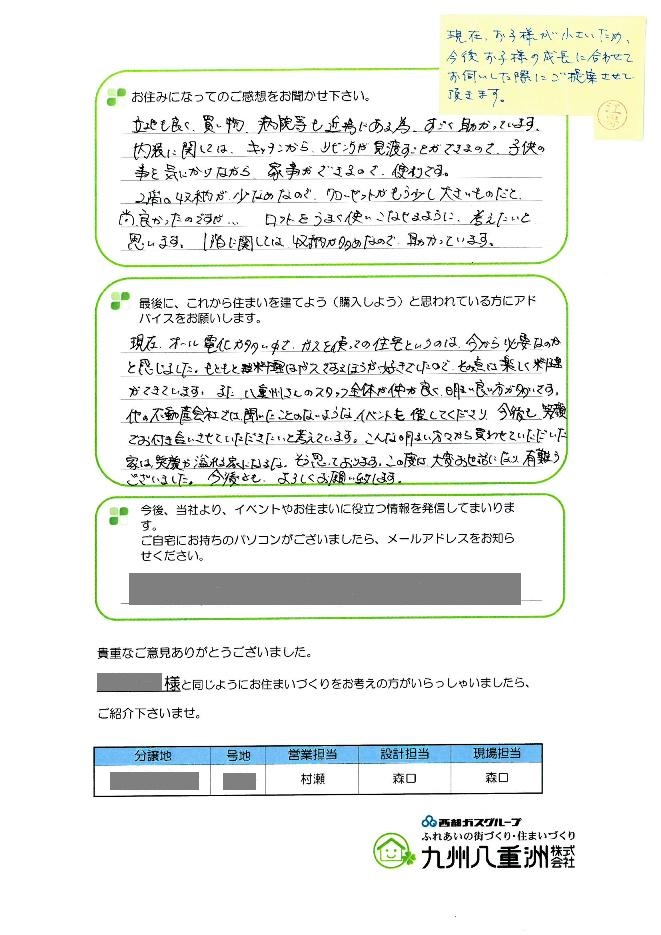 現在、お子様が小さいため、
今後お子様の成長に合わせて
お伺いした際にご提案させて
頂きます。
お住みになってのご感想をお聞かせ下さい。
立地も良く、買い物、病院等も近場にある為、すごく助かっています。
内装に関しては、キッチンから、リビングが見渡すことができるので、子供の
事を気にかけながら、家事ができるので、便利です。
2階の収納が少なめなので、クローゼットがもう少し大きいものだと、
尚良かったのですが… ロフトをうまく使いこなせるように、考えたいと
思います。1階に関しては収納が多めなので、助かっています。
最後に、これから住まいを建てよう（購入しよう）と思われている方にアド
バイスをお願いします。
現在、オール電化が多い中で、ガスを使っての住宅というのは、今から必要なのか
と感じました。もともと料理はガスであるほうが好きでしたので、その点は楽しく料理
ができています。また、八重洲さんのスタッフ全体が仲が良く、明るい良い方が多いです。
他の不動産会社では聞いたことのないようなイベントも催してくださり、今後も笑顔
でお付き合いさせていただきたいと考えています。こんな明るい方々から買わせていただいた
家は、笑顔が溢れる家になるな、そう思っております。この度は大変お世話になり、有難う
ございました。今後とも、よろしくお願い致します。
今後、当社より、イベントやお住まいに役立つ情報を発信してまいりま
す。
ご自宅にお持ちのパソコンがございましたら、メールアドレスをお知ら
せください。
貴重なご意見ありがとうございました。
様と同じようにお住まいづくりをお考えの方がいらっしゃいましたら、
ご紹介下さいませ。
分譲地 号地 営業担当 設計担当 現場担当
村瀬 森口 森口
西部ガスグループ
ふれあいの街づくり・住まいづくり
九州八重洲 株式会社